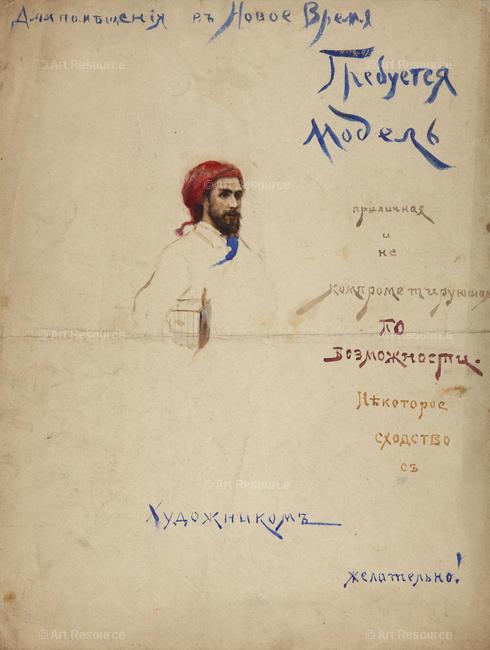 Для помѣщенія въ Новое Время
Требуется
Модель
приличная
и
не
компрометирующая
по
возможности.
Нѣкоторое
сходство
съ
Художникомъ
желательно!
© Art Resource
© Art Resource
© Art Resource
© Art Resource
© Art Resource
© Art Resource
© Art Resource
© Art Resource
© Art Resource